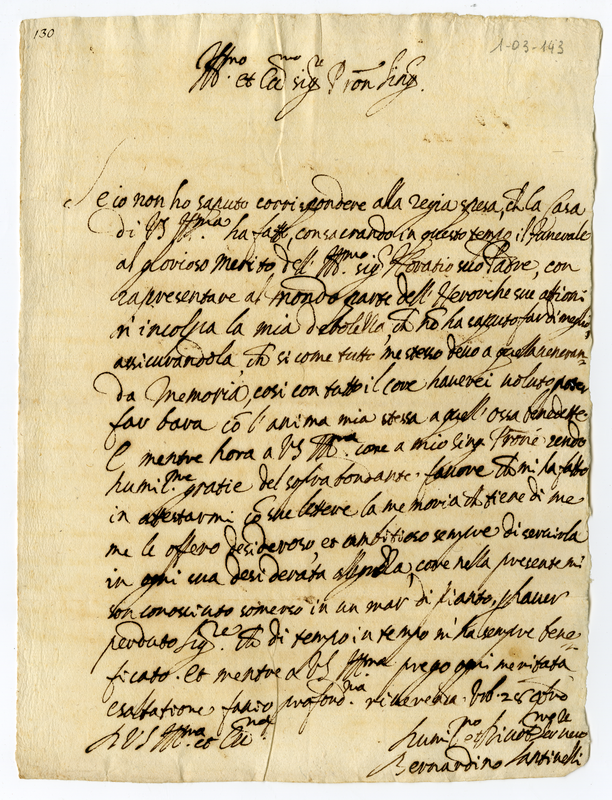 130
1-03-143
Ill.mo et Ecc.mo sig.re P.ron sing.
Se io non ho saputo corrispondere alla regia spesa, ch la Casa
di VS Ill.ma ha fatto, consacrando in questo tempo il funerale
al glorioso merito dell' Ill.mo sig. Horatio suo Padre, con
rapresentare al mondo parte dell' Heroiche sue attioni
n' incolpa la mia debolezza, ch nō ha saputo far di meglio,
assicurandola, ch si come tutto me stesso devo a quella veneran=
da Memoria, così con tutto il core haverei voluto poter
far bara cō l'anima mia stessa a quell' ossa benedette
E mentre hora a VS Ill.ma come a mio sing. Prone rendo
humil.me gratie del soprabondante favore ch mi ha fatto
in attestarmi cō sue lettere la memoria ch tiene di me
me le offero desideroso, et ambitioso sempre di servirla
in ogni sua desiderata allegrezza, come nella presente mi
son conosciuto somerso in un mar di pianto, p haver
perduto sig.re ch di tempo in tempo m'ha sempre bene=
ficato. Et mentre a VS Ill.ma prego ogni meritata
esaltatione facio profond.ma riverenza. Urb. 28
Di VS Ill.ma et Ecc.ma
humil.mo et servre
Bernardino Santinelli